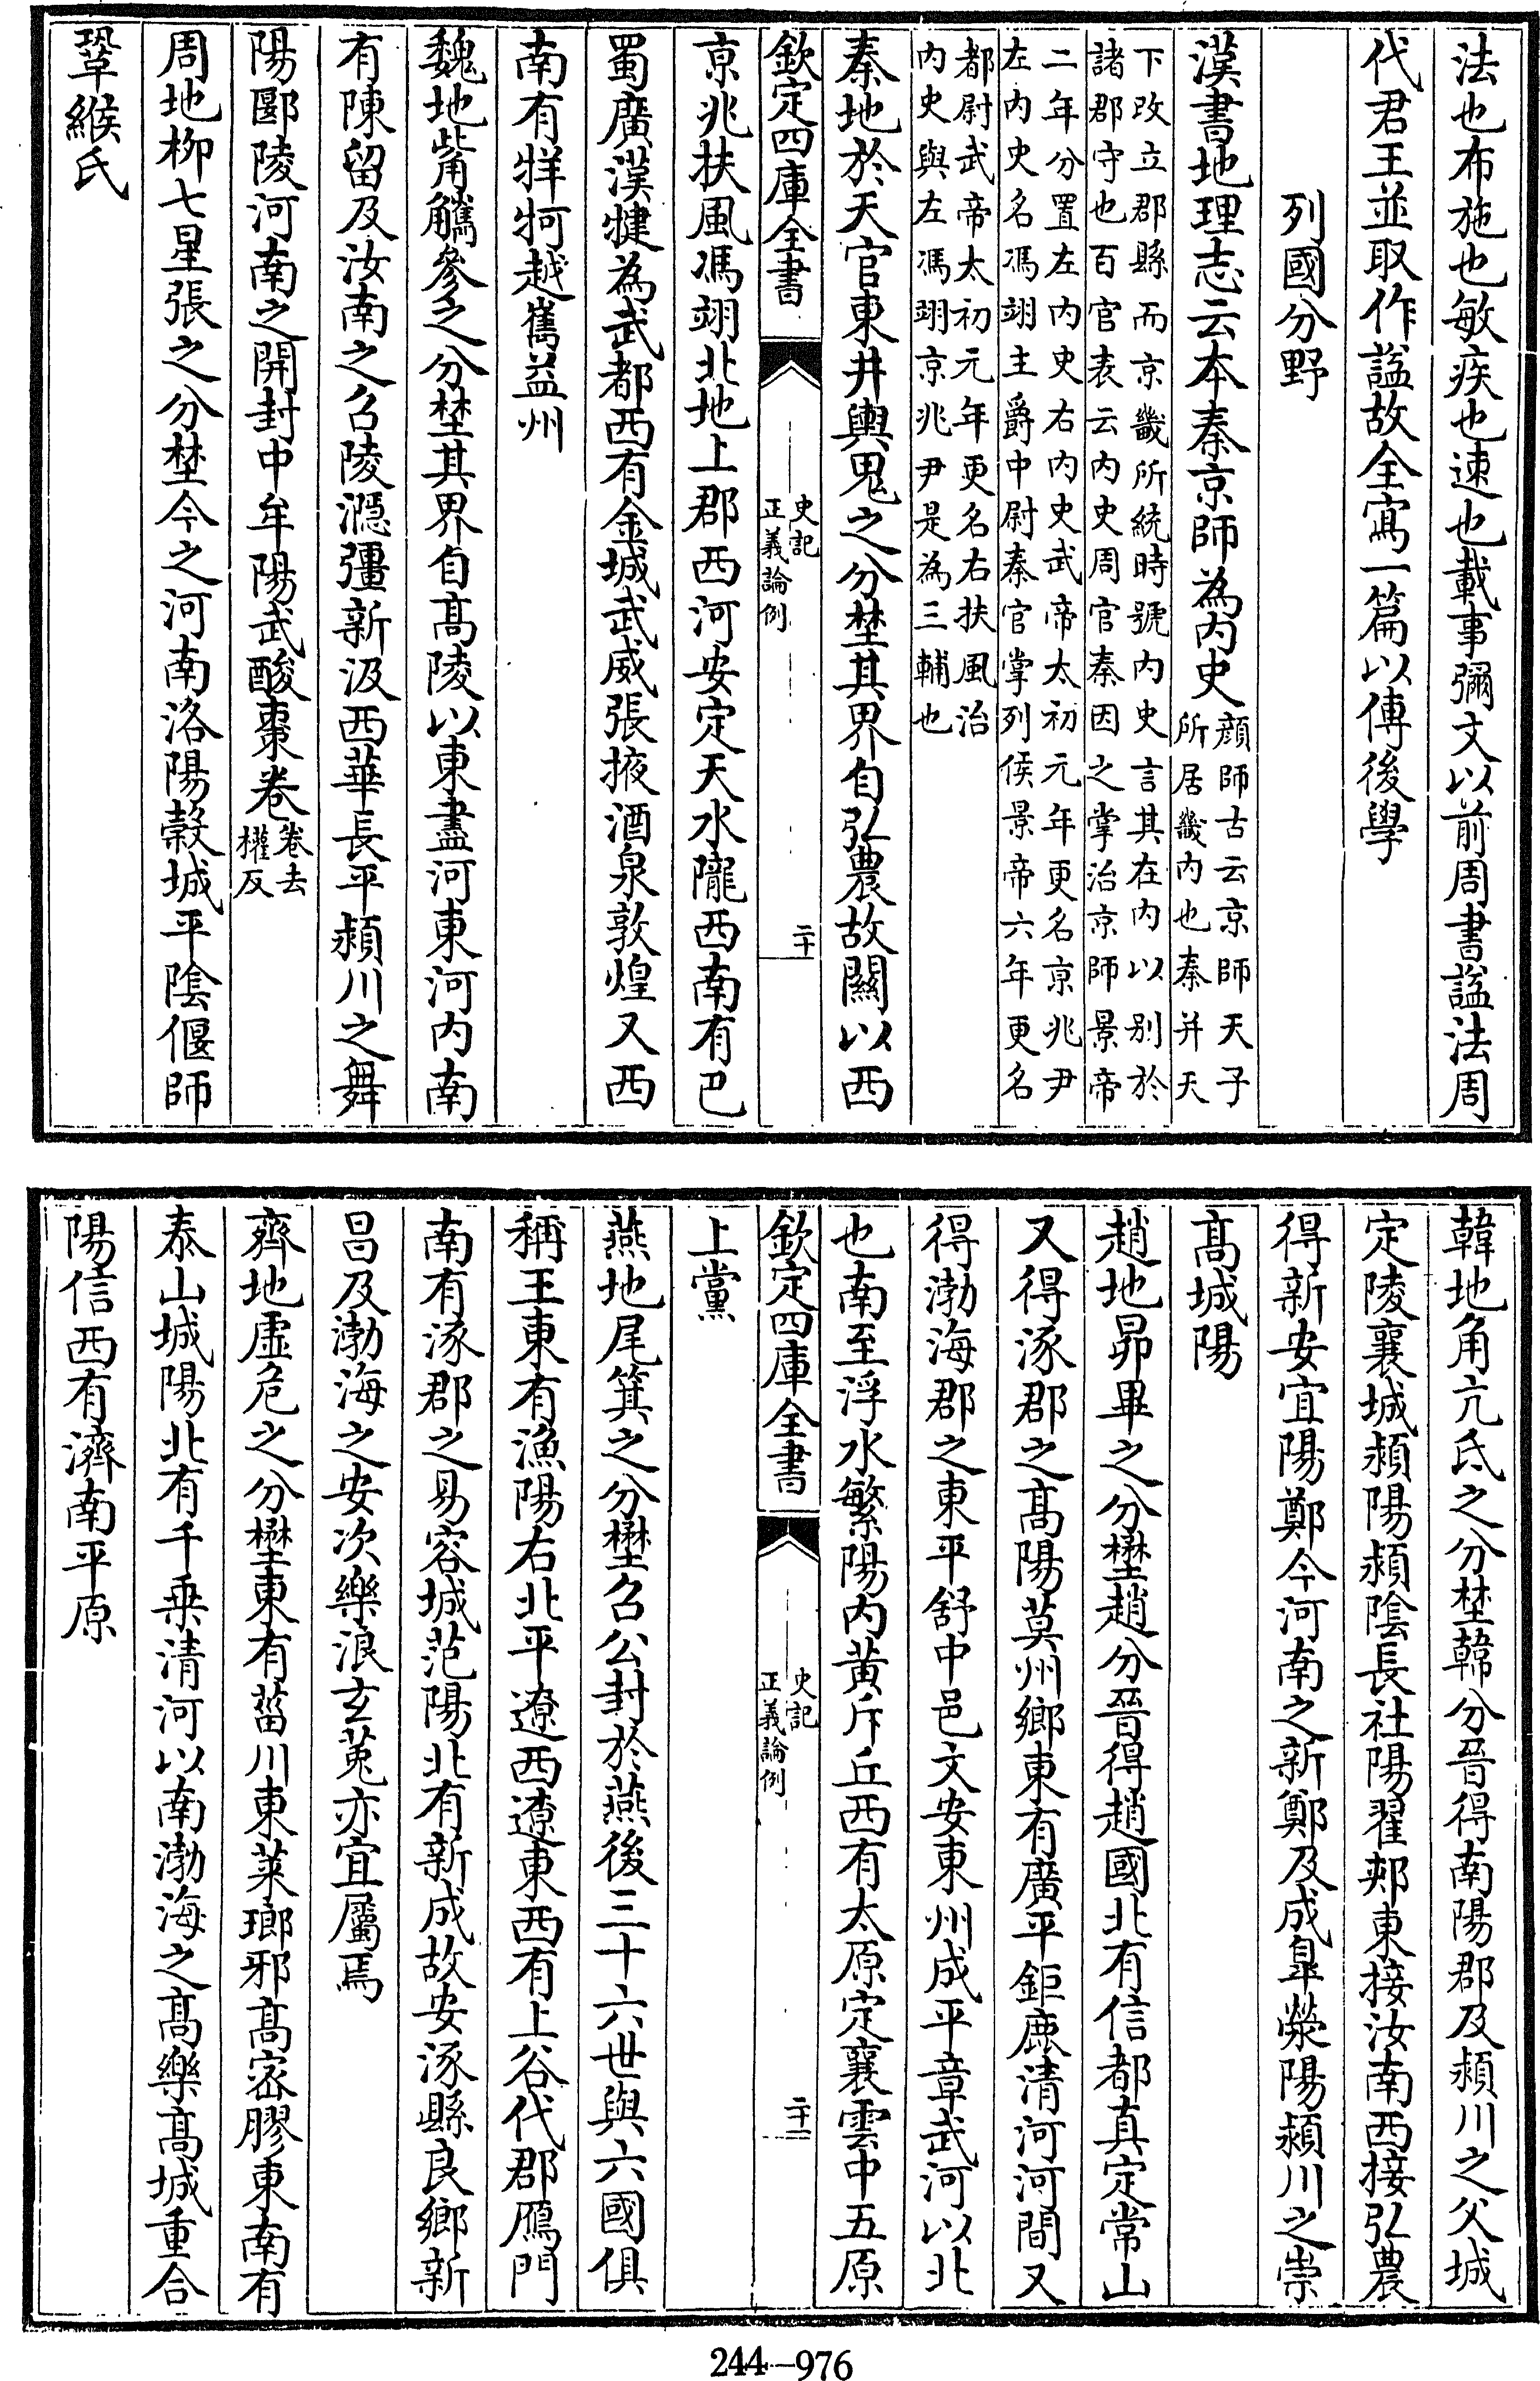 法也布施也敏疾也速也載事彌文以前周書諡法周
代君王並取作諡故全寫一篇以傳後學
列國分野
漢書地理志云本秦京師為內史
顔師古云京師天子
所居畿內也秦并天
下改立郡縣而京畿所統時號內史言其在內以别於
諸郡守也百官表云內史周官秦因之掌治京師景帝
二年分置左內史右內史武帝太初元年更名京兆尹
左內史名馮翊主爵中尉秦官掌列侯景帝六年更名
都尉武帝太初元年更名右扶風治
內史與左馮翊京兆尹是為三輔也
秦地於天官東井輿鬼之分埜其界自弘農故關以西
欽定四庫全書
史記
正義論例
二十
京兆扶風馮翊北地上郡西河安定天水隴西南有巴
蜀廣漢犍為武都西有金城武威張掖酒泉敦煌又西
南有牂牁越嶲益州
魏地觜觿參之分埜其界自髙陵以東盡河東河內南
有陳留及汝南之召陵㶏彊新汲西華長平潁川之舞
陽郾陵河南之開封中牟陽武酸棗卷
卷去
權反
周地柳七星張之分埜今之河南洛陽榖城平陰偃師
鞏緱氏
韓地角亢氐之分埜韓分晉得南陽郡及潁川之父城
定陵襄城潁陽潁陰長社陽翟郟東接汝南西接弘農
得新安宜陽鄭今河南之新鄭及成臯滎陽潁川之崇
髙城陽
趙地昴畢之分壄趙分晉得趙國北有信都真定常山
又得涿郡之髙陽莫州鄉東有廣平鉅鹿清河河間又
得渤海郡之東平舒中邑文安東州成平章武河以北
也南至浮水繁陽內黄斥丘西有太原定襄雲中五原
欽定四庫全書
史記
正義論例
二十一
上黨
燕地尾箕之分壄召公封於燕後三十六世與六國俱
稱王東有漁陽右北平遼西遼東西有上谷代郡鴈門
南有涿郡之易容城范陽北有新成故安涿縣良鄉新
昌及渤海之安次樂浪玄菟亦宜屬焉
齊地虛危之分壄東有菑川東萊瑯邪髙密膠東南有
泰山城陽北有千乗清河以南渤海之髙樂髙城重合
陽信西有濟南平原
244—976